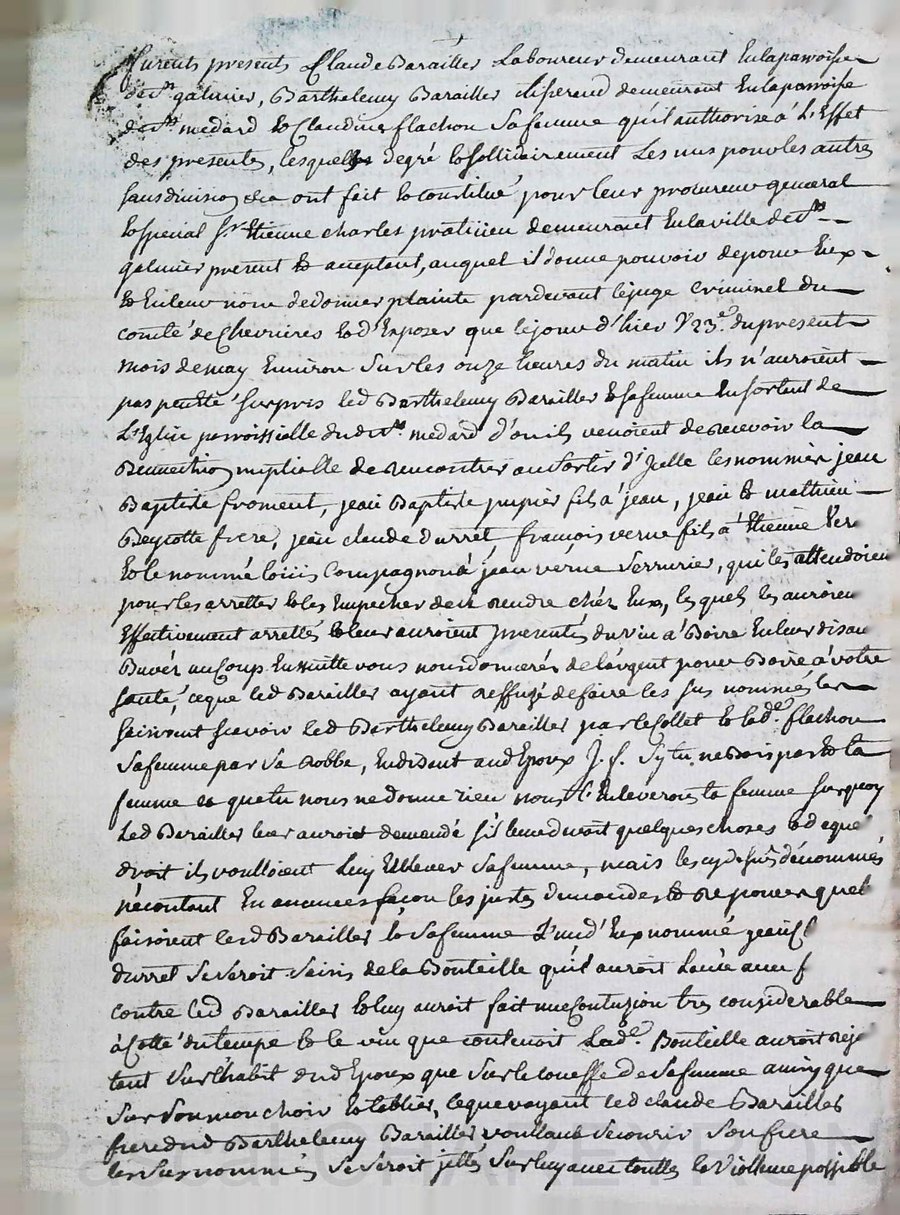 furents presents Claude Barailler Laboureur demeurant En la parroisse
de St galmier, Barthelemy Barailler demeurant En la parroisse
de St medard Et Claudine flachon Sa femme qu'il authorise á L'Effet
des presentes, lesquelles degré Et sollidairement Les uns pour les autres
sans division ont fait Et constitué pour leur procureur general
Et special Sr Etienne charles praticien demeurant En la ville de St
galmier present Et acceptant, auquel il donne pouvoir de pour Eux
Et En leur nom de donner plainte pardevant le juge criminel du
comté de Chevrieres Et d'Exposer que le jour d'hier 23e du present
mois de may Environ Sur les onze heures du matin ils n'auroient
pas peu Etre surpris led Barthelemy Barailler Et sa femme En sortent de
L'Eglise parroissialle dud St medard d'ou ils venoient de recevoir la
Benediction nuptialle de rencontrer au sortir d'Icelle les nommés jean
Baptiste froment, jean Baptiste pupier fils á jean, jean Et mathieu
Peyrotte frere, jean claude durret françois verne fils á Etienne
Et le nommé loüis Compagnon á jean verne Serrurier, qui les attendoien
pour les arretter Et les Empecher de se rendre chéz Eux, les quels les auroien
Effectivement arrettés Et leur auroient presentés du vin á Boire En leur disan
Buvéz un Coup Ensuitte vous nous donneréz de l'argent pour Boire á votre
santé, ce que led Barailler ayant reffuzé de faire les sus nommés les
saisirent scavoir led Barthelemy Barailler par le Collet Et lade flachon
Sa femme par Sa Robbe, En disent aud Epoux J. f. Sy tu ne Bois pas Et ta
femme Et que tu nous ne donne rien nous t'Enleverons ta femme sur quoy
Led Barailler leur auroit demandé s'il leur devoit quelques choses Et de quel
droit ils voulloient Luy Enlever Sa femme, mais les cy dessus dénommés
n'écoutant En aucunes façon les justes demandes Et reponces que
faisoient led Barailler Et Sa femme L'un d'Eux nommé jean Cl
durret Se Seroit Saisis de la Bouteille qu'il auroit Lancée avec f
contre led Barailler Et luy auroit fait une Contuzion tres considerable
á Cotté du tempe Et le vin que contenoit Lade Bouteille auroit reja
tant Sur l'habit dud Epoux que Sur le coueffe de Sa femme ainsy que
Sur Son mouchoir Et tablier, ce que voyant led claude Barailler
frere dud Barthelemy Barailler voullant Secourir Son frere
les Sus nommés Se Seroit jettés Sur luy avec touttes la Viollence possible